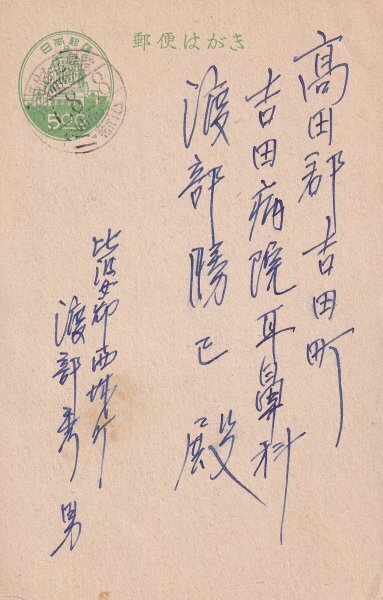 郵便はがき
日本郵便
5.00
高田郡吉田町
吉田病院耳鼻科
渡部勝己殿
比婆郡西城町
渡部秀男